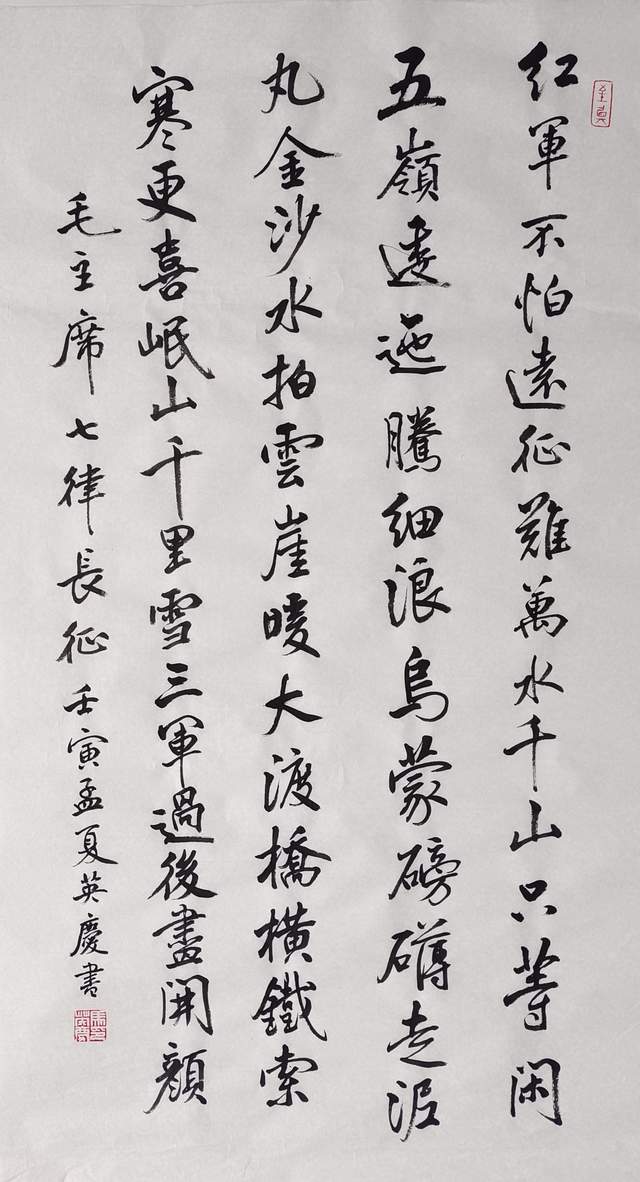 紅軍不怕遠征難萬水千山只等閑
五嶺逶迤騰細浪烏蒙磅礴走泥
丸金沙水拍雲崖暖大渡橋橫鐵索
寒更喜岷山千里雪三軍過後盡開顏
毛主席七律長征壬寅孟夏英慶書